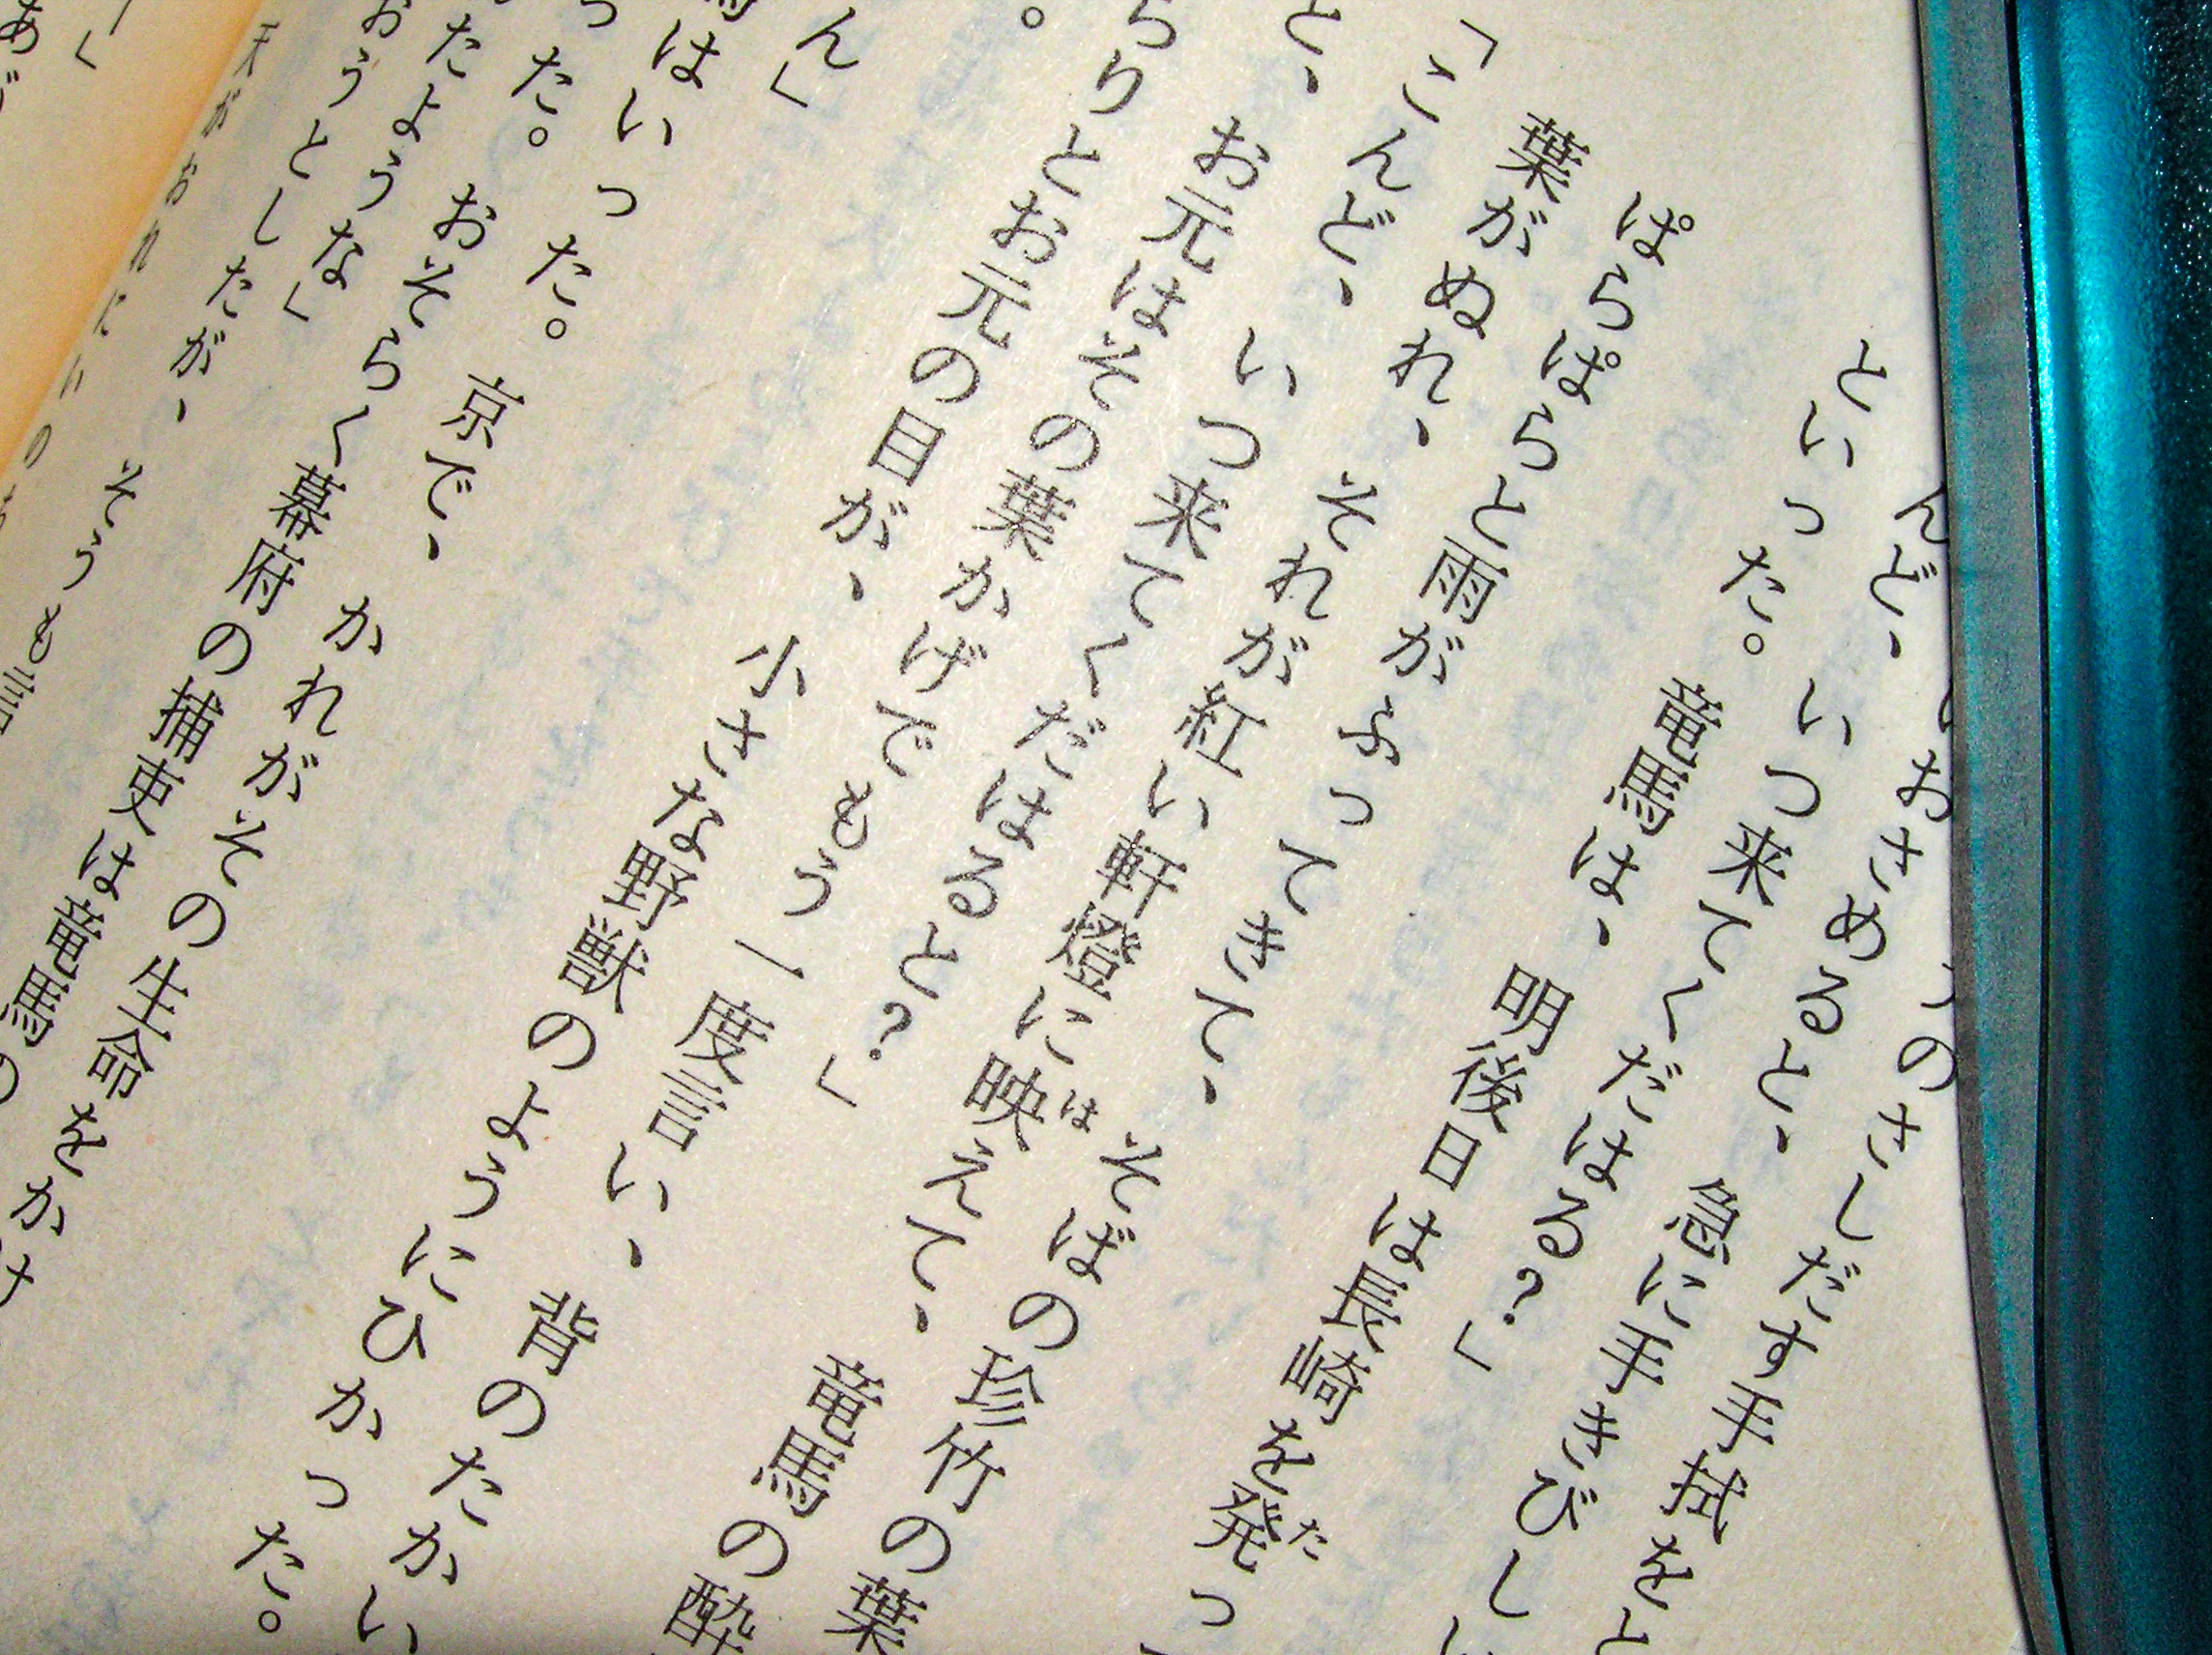 のさしだす手拭をと
おさめると、急に手きびし
んど、いつ来てくだはる？」
といった。竜馬は、明後日は長崎を発っ
た
ぱらぱらと雨がふってきて、そばの珍竹の葉
葉がぬれ、それが紅い軒燈に映えて、竜馬の酔
は
「こんど、いつ来てくだはると？」
と、お元はその葉かげでもう一度言い、背のたかい
らりとお元の目が、小さな野獣のようにひかった。
。
ん」
馬はいった。京で、かれがその生命をかけ
った。おそらく幕府の捕吏は竜馬の
たような」
おうとしたが、そうも言
天がおれにいの